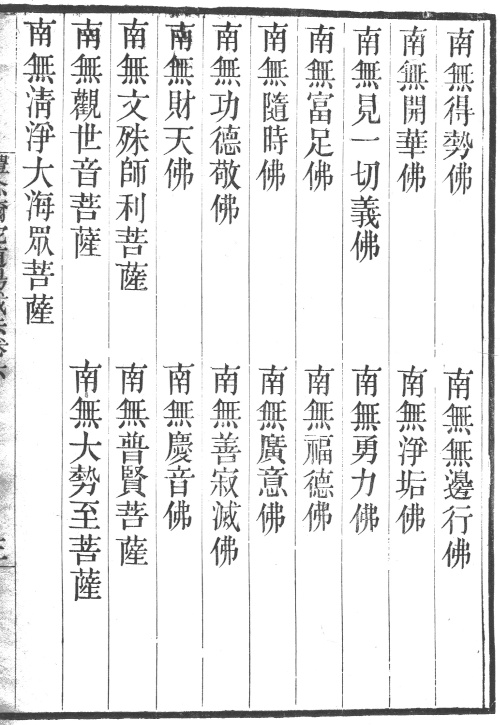 南無得勢佛　南無無邊行佛
南無開華佛　南無淨垢佛
南無見一切義佛　南無勇力佛
南無富足佛　南無福德佛
南無隨時佛　南無廣意佛
南無功德敬佛　南無善寂滅佛
南無財天佛　南無慶音佛
南無文殊師利菩薩　南無普賢菩薩
南無觀世音菩薩　南無大勢至菩薩
南無清淨大海眾菩薩